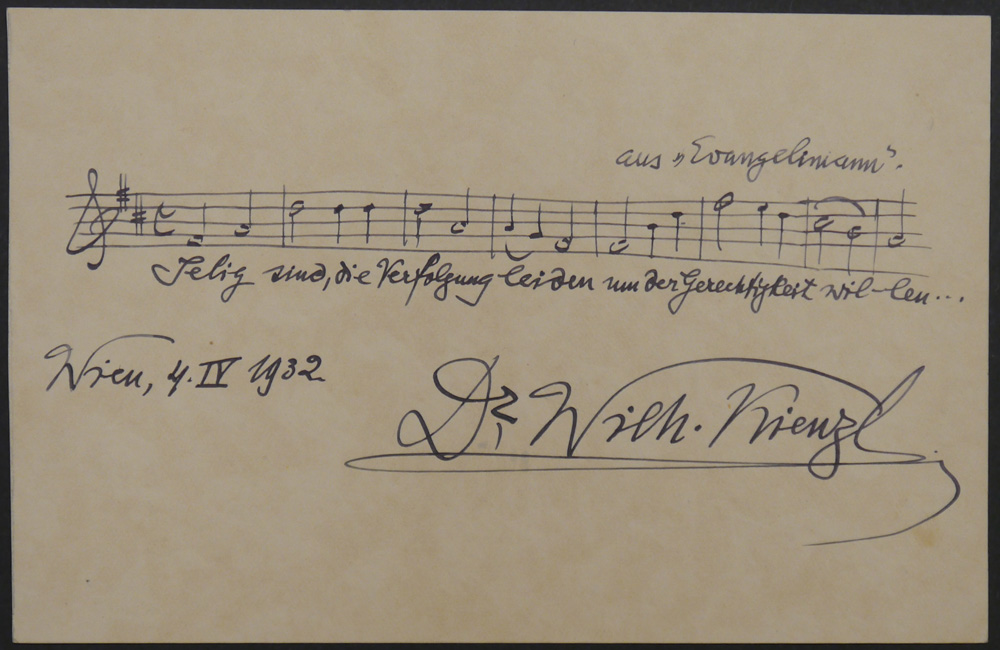 aus „Evangelimann".
Selig sind, die Verfolgung leiden um der Gerechtigkeit wil-len...
Wien, 4. IV 1932.
Dr. Wilh. Kienzl